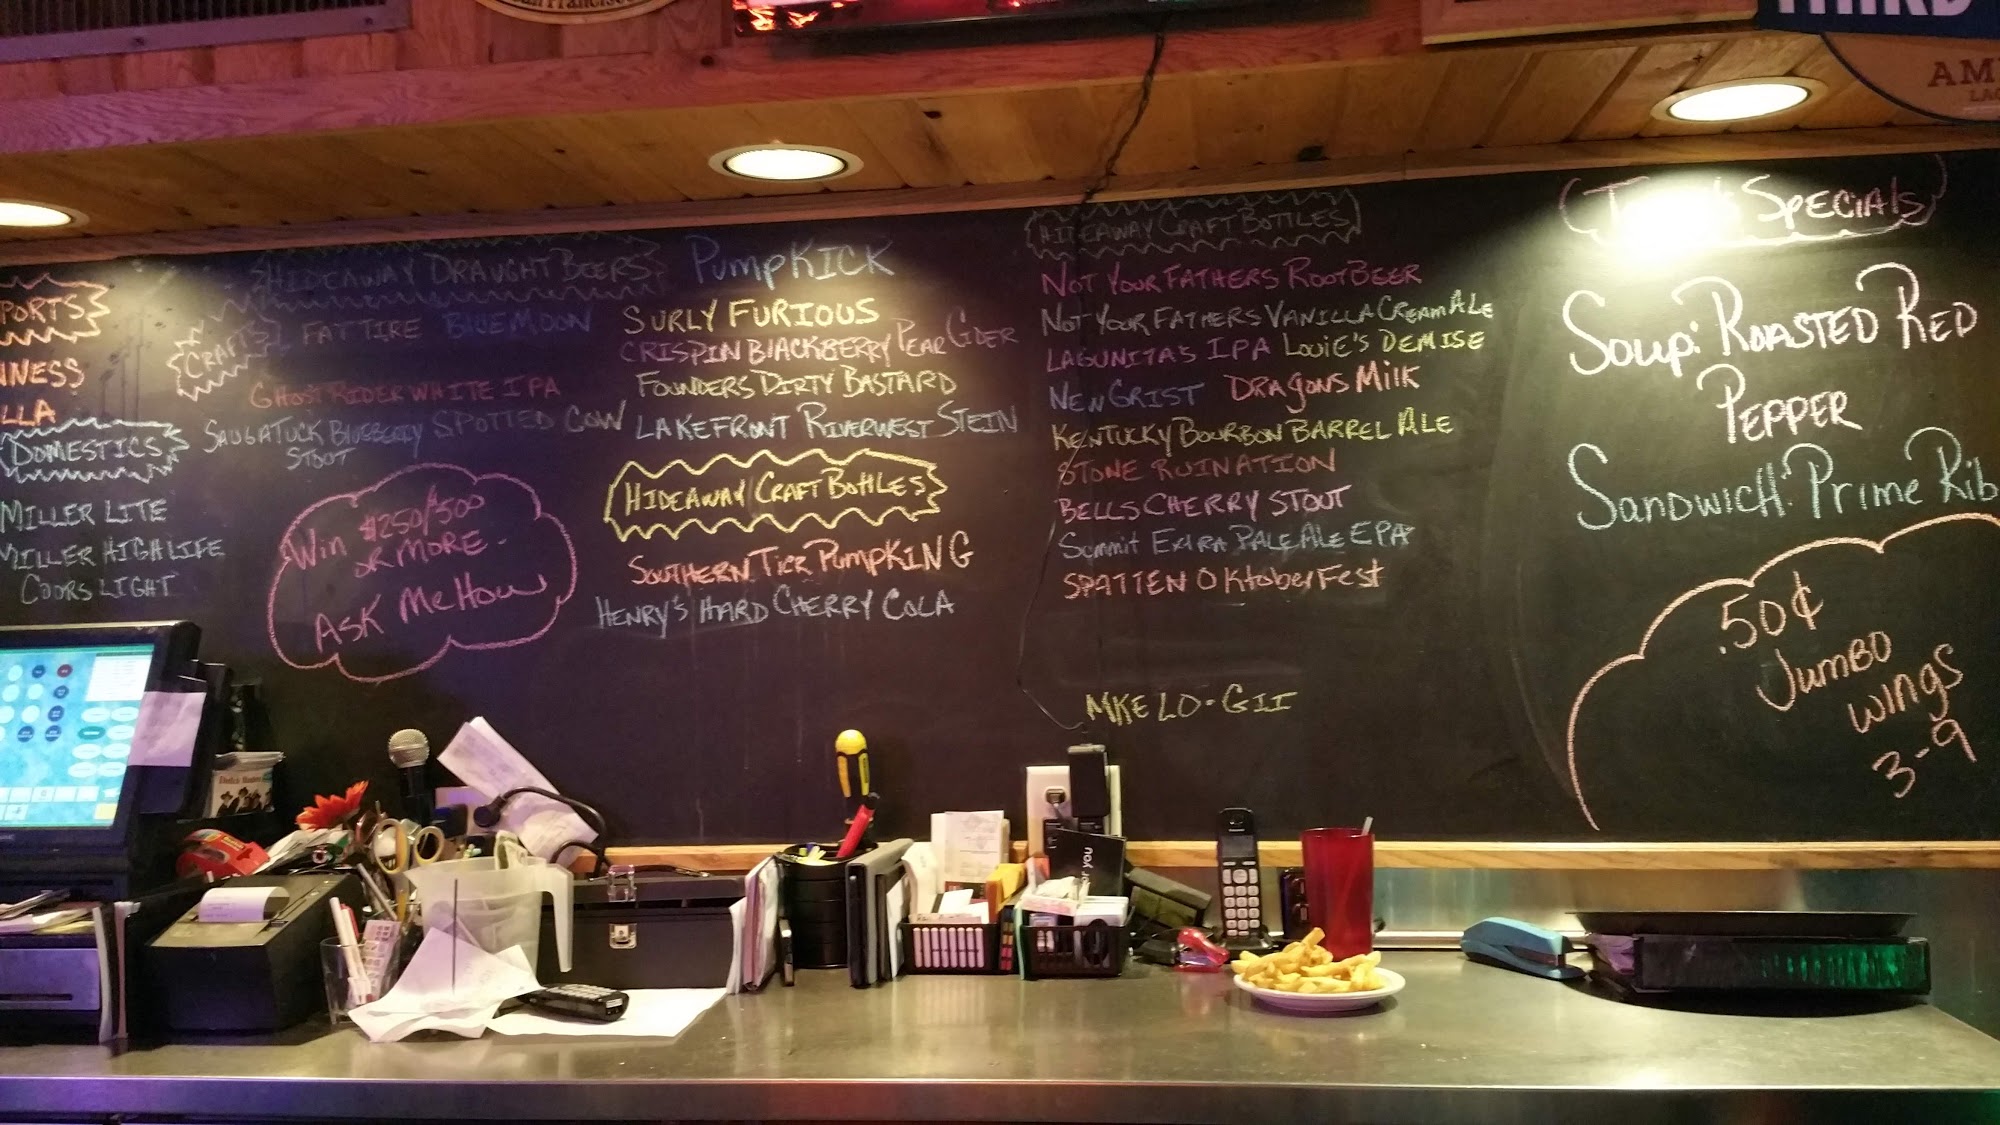 San Francisco
THIRD
AM
LA
PORTS
NNESS
LLA
DOMESTICS
MILLER LITE
MILLER HIGH LIFE
COORS LIGHT
HIDEAWAY DRAUGHT BEERS
CRAFTS
FAT TIRE BLUE MOON
GHOST RIDER WHITE IPA
SAUGATUCK BLUEBERRY SPOTTED COW
STOUT
WIN $250/$500
OR MORE.
ASK ME HOW
PUMPKICK
SURLY FURIOUS
CRISPIN BLACKBERRY PEAR CIDER
FOUNDERS DIRTY BASTARD
LAKEFRONT RIVERWEST STEIN
HIDEAWAY CRAFT BOTTLES
SOUTHERN TIER PUMPKING
HENRY'S HARD CHERRY COLA
HIDEAWAY CRAFT BOTTLES
NOT YOUR FATHERS ROOT BEER
NOT YOUR FATHERS VANILLA CREAM ALE
LAGUNITA'S IPA LOUIE'S DEMISE
NEW GRIST DRAGONS MILK
KENTUCKY BOURBON BARREL ALE
STONE RUINATION
BELLS CHERRY STOUT
SUMMIT EXTRA PALE ALE EPA
SPATTEN OKTOBERFEST
MKE LO-GII
SPECIALS
SOUP: ROASTED RED
PEPPER
SANDWICH: PRIME RIB
.50¢
JUMBO
WINGS
3-9